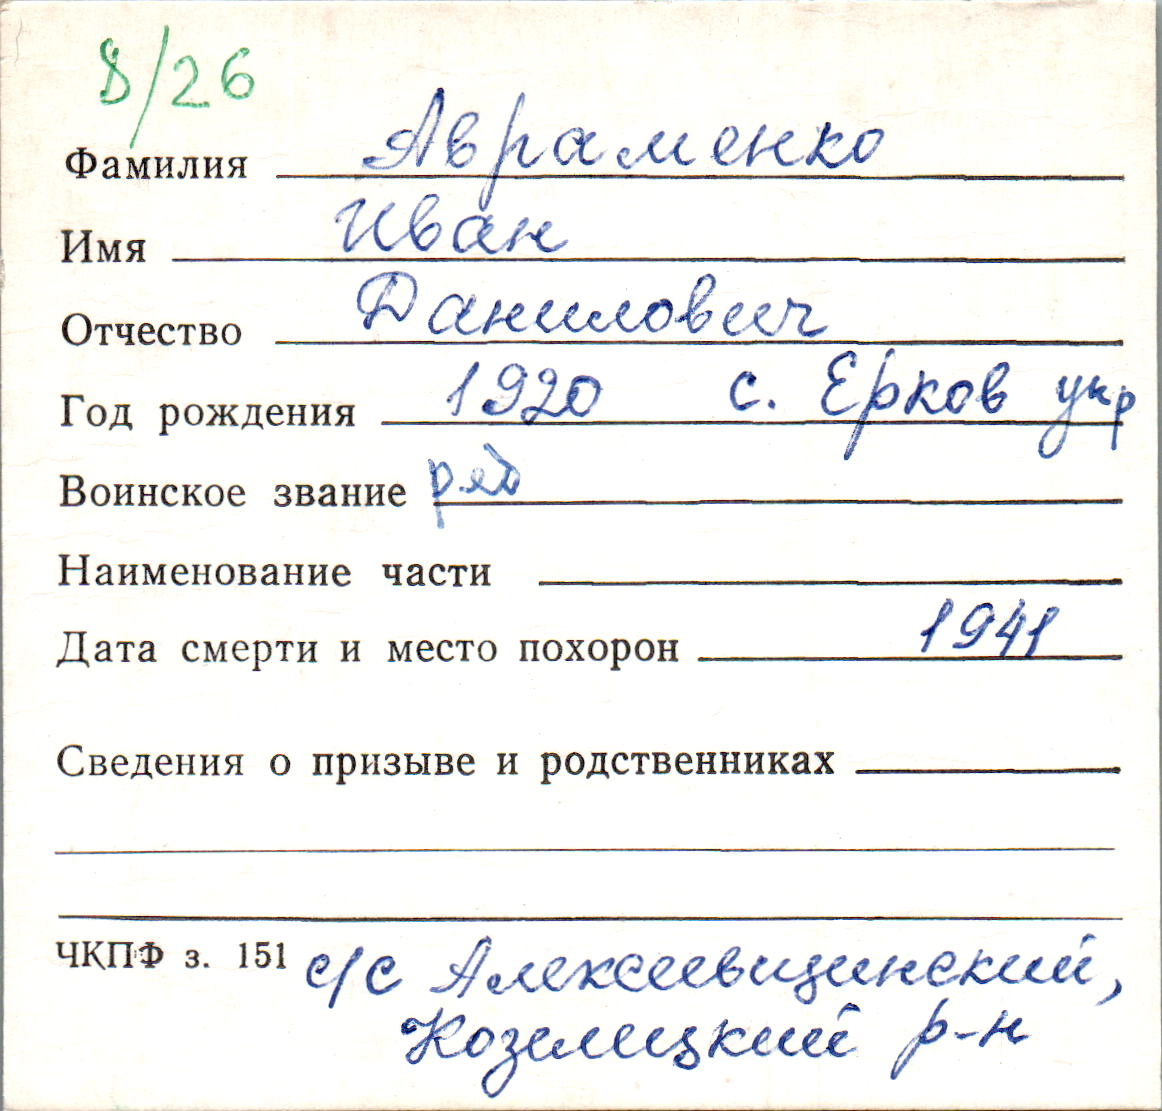 8/26
Фамилия Авраменко
Имя Иван
Отчество Данилович
Год рождения 1920 с. Ерков укр
Воинское звание ряд
Наименование части
Дата смерти и место похорон 1941
Сведения о призыве и родственниках
ЧКПФ з. 151 с/с Алексеевщинский,
Козелецкий р-н